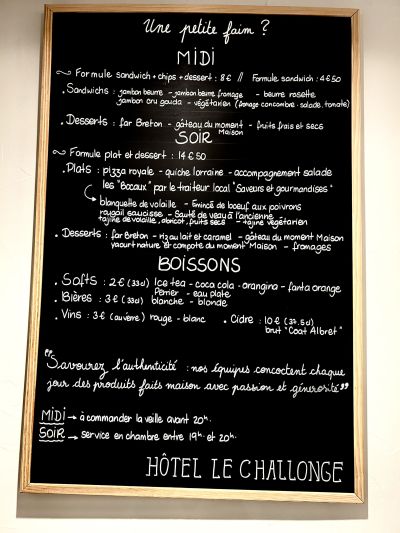 Une petite faim ?
MIDI
~ Formule sandwich + chips + dessert : 8€ // Formule sandwich : 4€50
. Sandwichs : jambon beurre - jambon beurre fromage - beurre rosette
jambon cru gouda - végétarien (fromage concombre . salade, tomate)
. Desserts : far Breton - gâteau du moment Maison - fruits frais et secs
SOIR
~ Formule plat et dessert : 14€50
. Plats : pizza royale - quiche lorraine - accompagnement salade
les "Bocaux" par le traiteur local "Saveurs et gourmandises"
blanquette de volaille - Émincé de boeuf aux poivrons
rougail saucisse - Sauté de veau à l'ancienne
tajine de volaille, abricot, fruits secs - tajine végétarien
. Desserts : far Breton - riz au lait et caramel - gâteau du moment Maison
yaourt nature et compote du moment Maison - fromages
BOISSONS
. Softs : 2€ (33cl) Ice tea - coca cola - orangina - fanta orange
Perrier - eau plate
. Bières : 3€ (33cl) blanche - blonde
. Vins : 3€ (au verre) rouge - blanc . Cidre : 10€ (37.5cl)
brut "Coat Albret"
"Savourez l'authenticité : nos équipes concoctent chaque
jour des produits faits maison avec passion et générosité"
MIDI → à commander la veille avant 20h.
SOIR → service en chambre entre 19h et 20h.
HÔTEL LE CHALLONGE